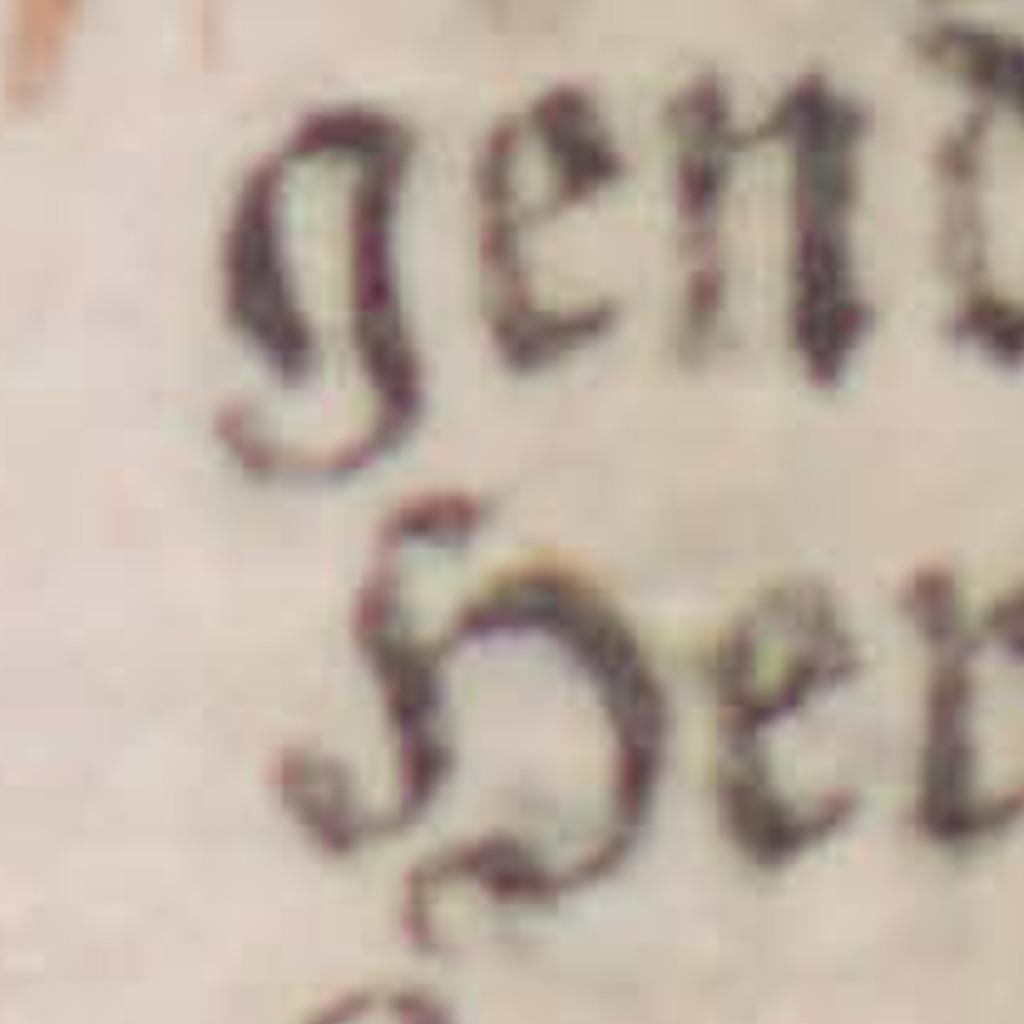 gen
Her